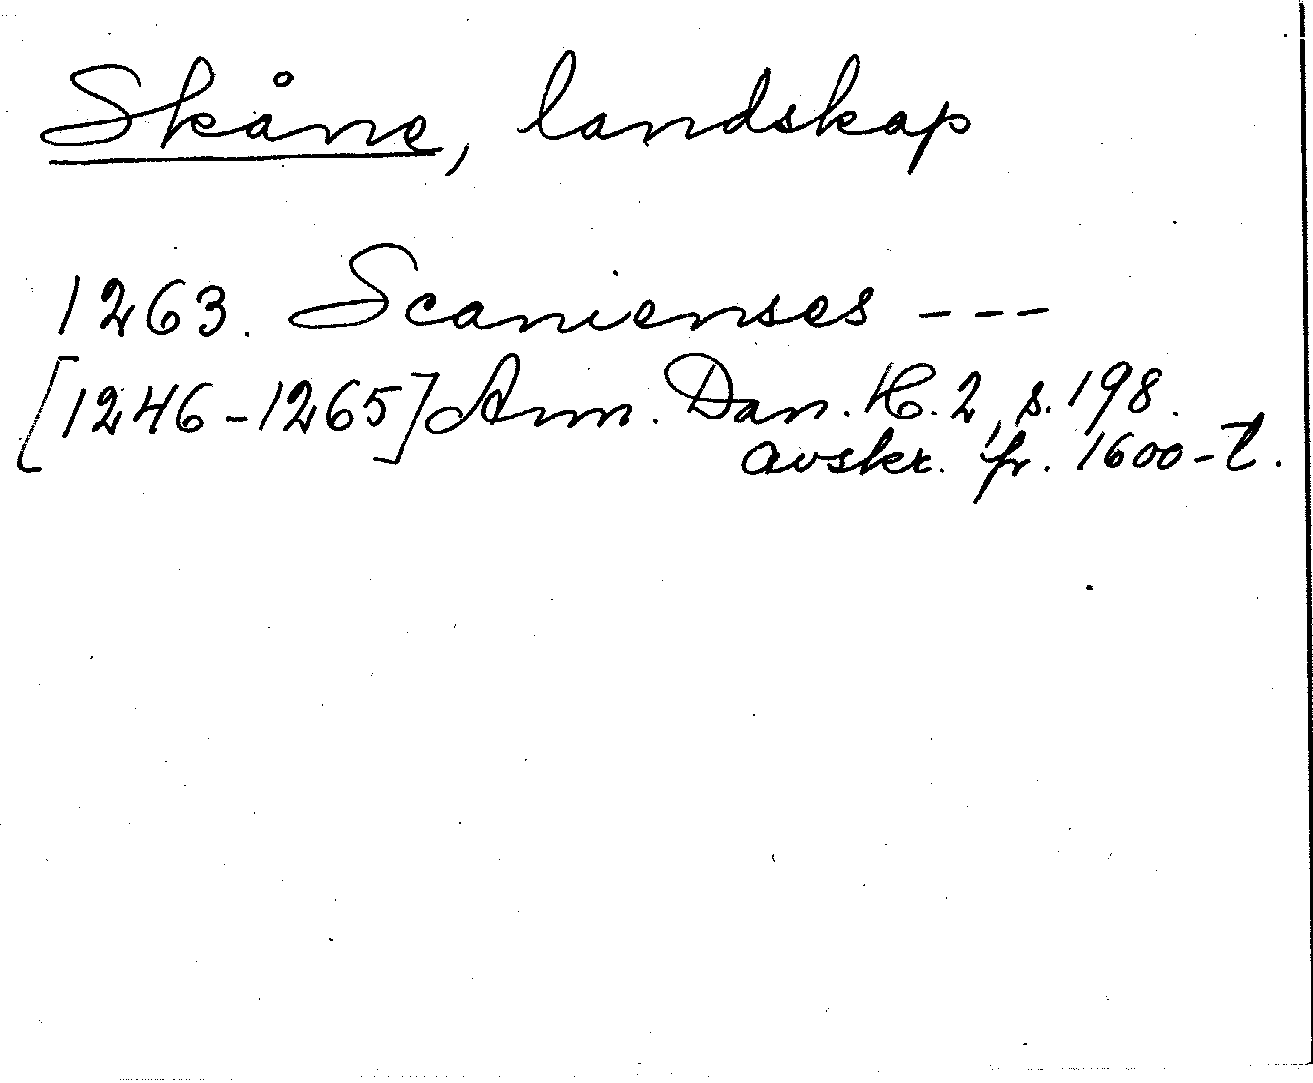 Skåne, landskap
1263. Scanienses ---
[1246-1265] Ann. Dan. K. 2, s. 198.
avskr. fr. 1600-t.